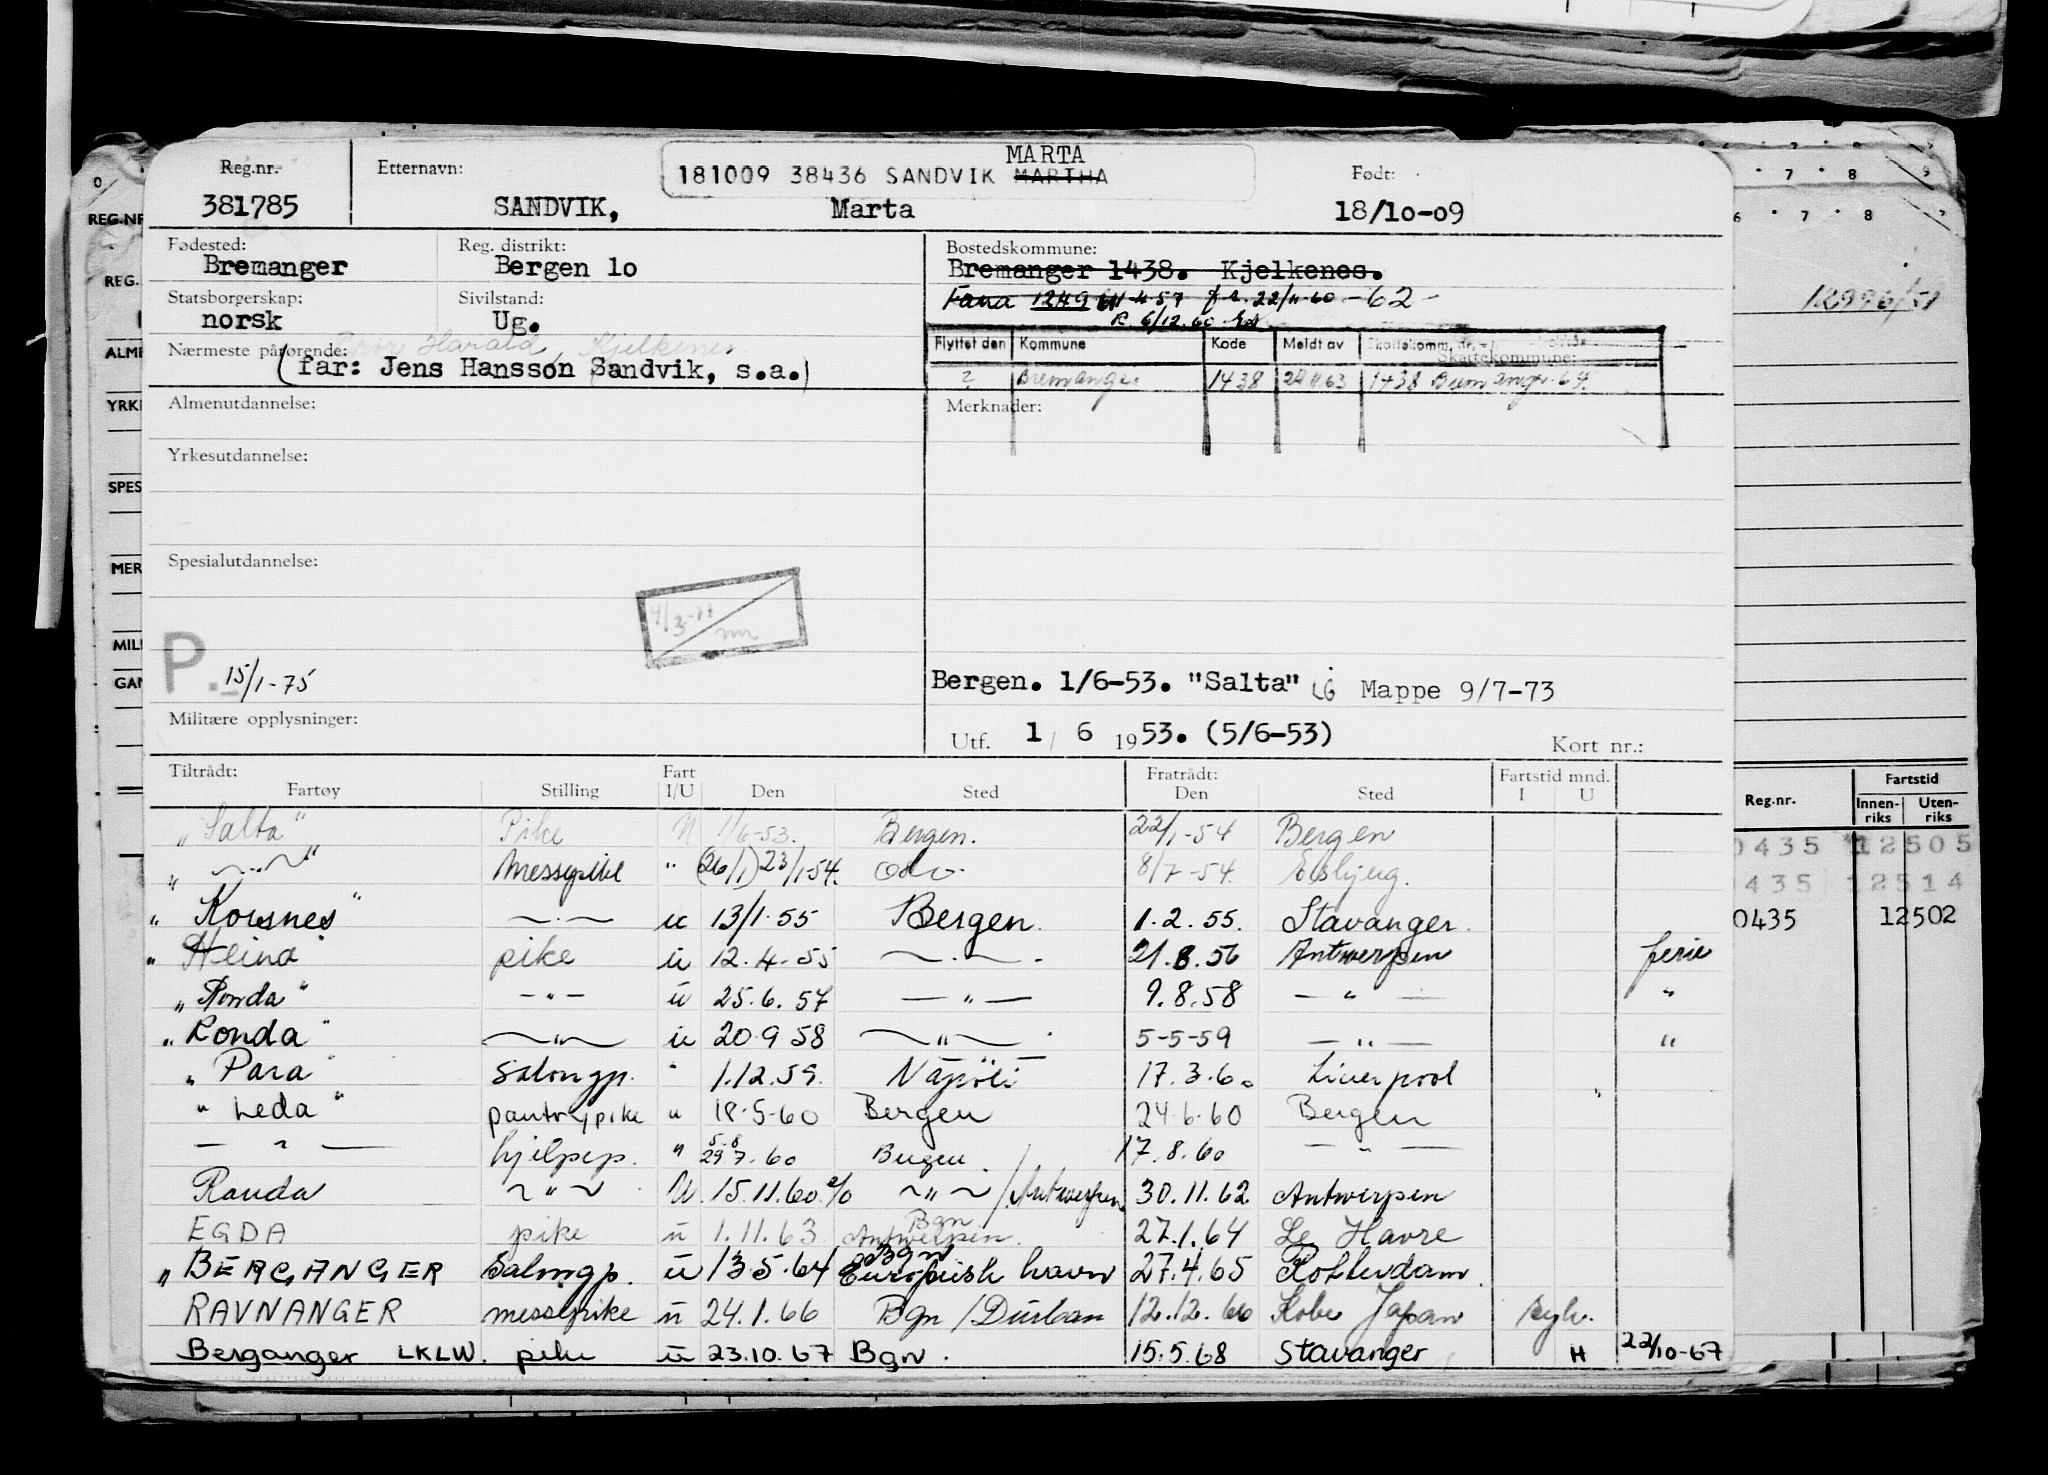 MARTA
Reg.nr. Etternavn: 181009 38436 SANDVIK MARTHA Født:
381785 SANDVIK, Marta 18/10-09
Fødested: Reg. distrikt: Bostedskommune:
Bremanger Bergen 10 Bremanger 1438. Kjelkenes.
Statsborgerskap: Sivilstand: Fana 1249 22/11-60 -62-
norsk Ug. 6/12.60
Harald Kjelkenes
Nærmeste pårørende: Flyttet den Kommune Kode Meldt av Skattekomm. Skattekommune:
(far: Jens Hansson Sandvik, s.a.) ? Bremanger 1438 63 1438 64.
Almenutdannelse: Merknader:
Yrkesutdannelse:
Spesialutdannelse:
P. 15/1-75
Bergen. 1/6-53. "Salta" LG Mappe 9/7-73
Militære opplysninger:
Utf. 1/ 6 1953. (5/6-53) Kort nr.:
Tiltrådt: Fart Fratrådt: Fartstid mnd.
Fartøy Stilling I/U Den Sted Den Sted I U
"Salta" Pike U 1/6-53. Bergen. 22/1-54 Bergen
" —..— " Messepike " (26/1) 23/1-54. 8/7-54. Esbjerg.
"Korsnes" —.— u 13/1-55 Bergen. 1.2.55. Stavanger.
"Heina" pike u 12.4.55 —.— 21.8.56 Antwerpen ferie
"Ronda" — " — u 25.6.57 — " — 9.8.58 — " — "
"Ronda" — " — u 20.9.58 — " — 5-5-59 — " — "
"Para" Salongp. " 1.12.59. Napoli 17.3.60 Liverpool
"Leda" pantrypike " 18-5-60 Bergen 24.6.60 Bergen
— " — hjelpep. " 5.8 29.7.60 Bergen. 17.8.60 — " —
Randa — " — U 15.11.60 — " — /Antwerpen. 30.11.62 Antwerpen
EGDA pike u 1.11.63 Bgn Antwerpen. 27.1.64 Le Havre
"BERGANGER Salongp. u 13.5.64 Bgn Europeisk havn 27.4.65 Rotterdam
RAVNANGER messepike u 24.1.66 Bgn/Durban 12.12.66 Kobe Japan syk.
Berganger LKLW. pike u 23.10.67 Bgn. 15.5.68 Stavanger H 22/10-67
REG.NR
REG.
ALME
YRKE
SPES
MER
MILI
GAN
7 8
6 7 8
12996/51
Reg.nr. Fartstid
Innen-riks Uten-riks
0435 12505
435 12514
0435 12502